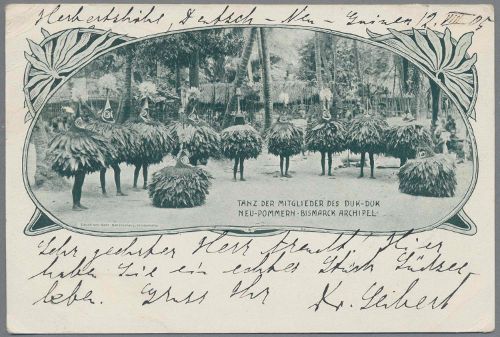 Herbertshöhe, Deutsch-Neu-Guinea, 12. VIII. 05
TANZ DER MITGLIEDER DES DUK-DUK
NEU-POMMERN · BISMARCK ARCHIPEL ·
Sehr geehrter Herr Hier
haben Sie ein echtes Stück Südsee-
leben. Gruss Ihr Dr. Seibert